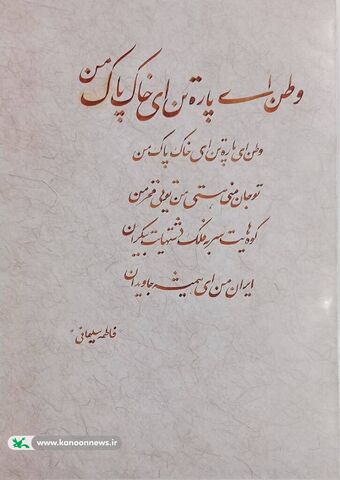 وطن اے پارۀ تن ای خاک پاک من
وطن ای پارۀ تن ای خاک پاک من
تو جان منی هستی من تویی فخر من
کوه‌هایت سر به فلک دشتهایت بیکران
ایران من ای همیشه جاویدان
فاطمه سلیمانی
www.kanoonnews.ir